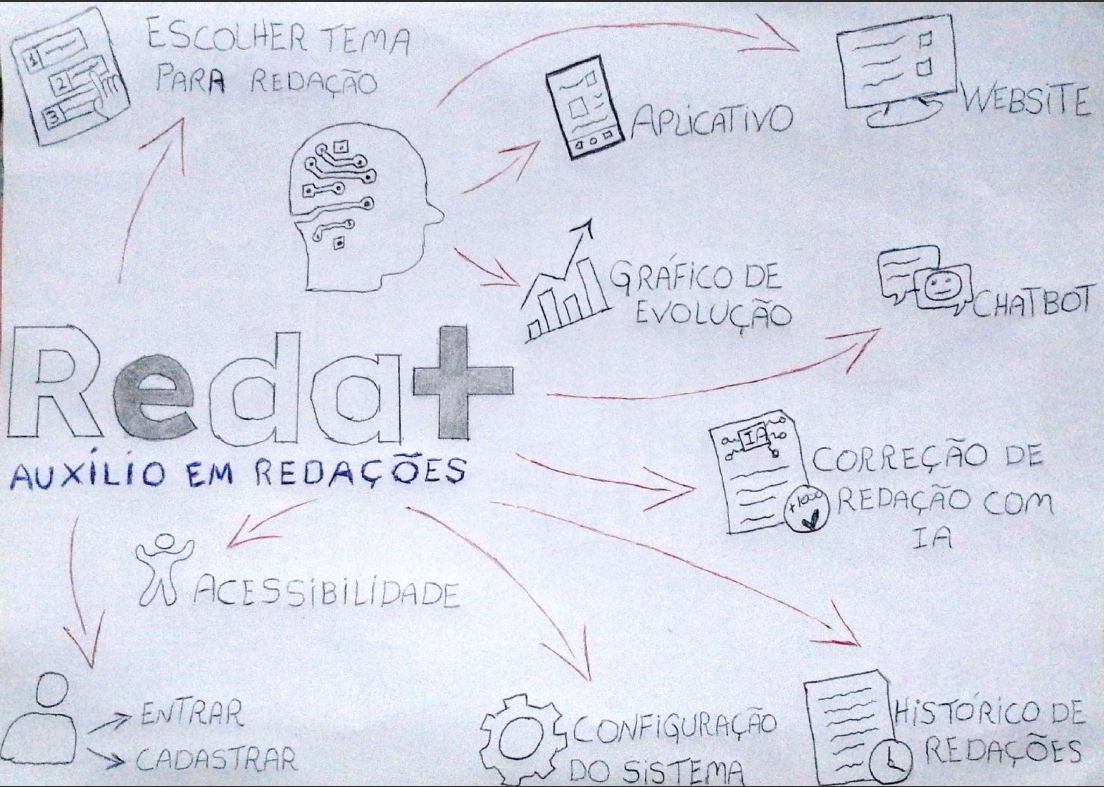 1
2
3
ESCOLHER TEMA
PARA REDAÇÃO
APLICATIVO
WEBSITE
GRÁFICO DE
EVOLUÇÃO
CHATBOT
Reda+
AUXÍLIO EM REDAÇÕES
IA
+1000
CORREÇÃO DE
REDAÇÃO COM
IA
ACESSIBILIDADE
ENTRAR
CADASTRAR
CONFIGURAÇÃO
DO SISTEMA
HISTÓRICO DE
REDAÇÕES